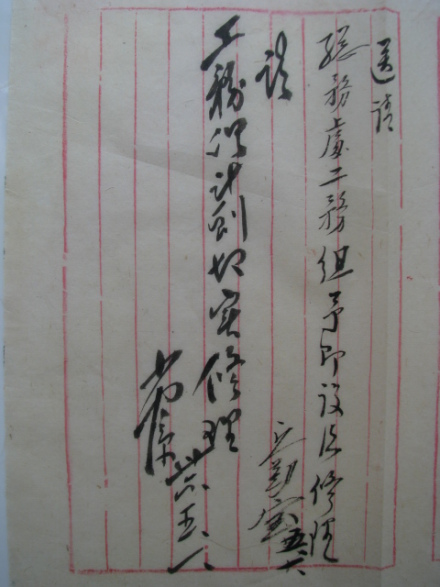 送請
總務處工務組予即設法修理
五、六
請
工務組計劃切實修理
五、八